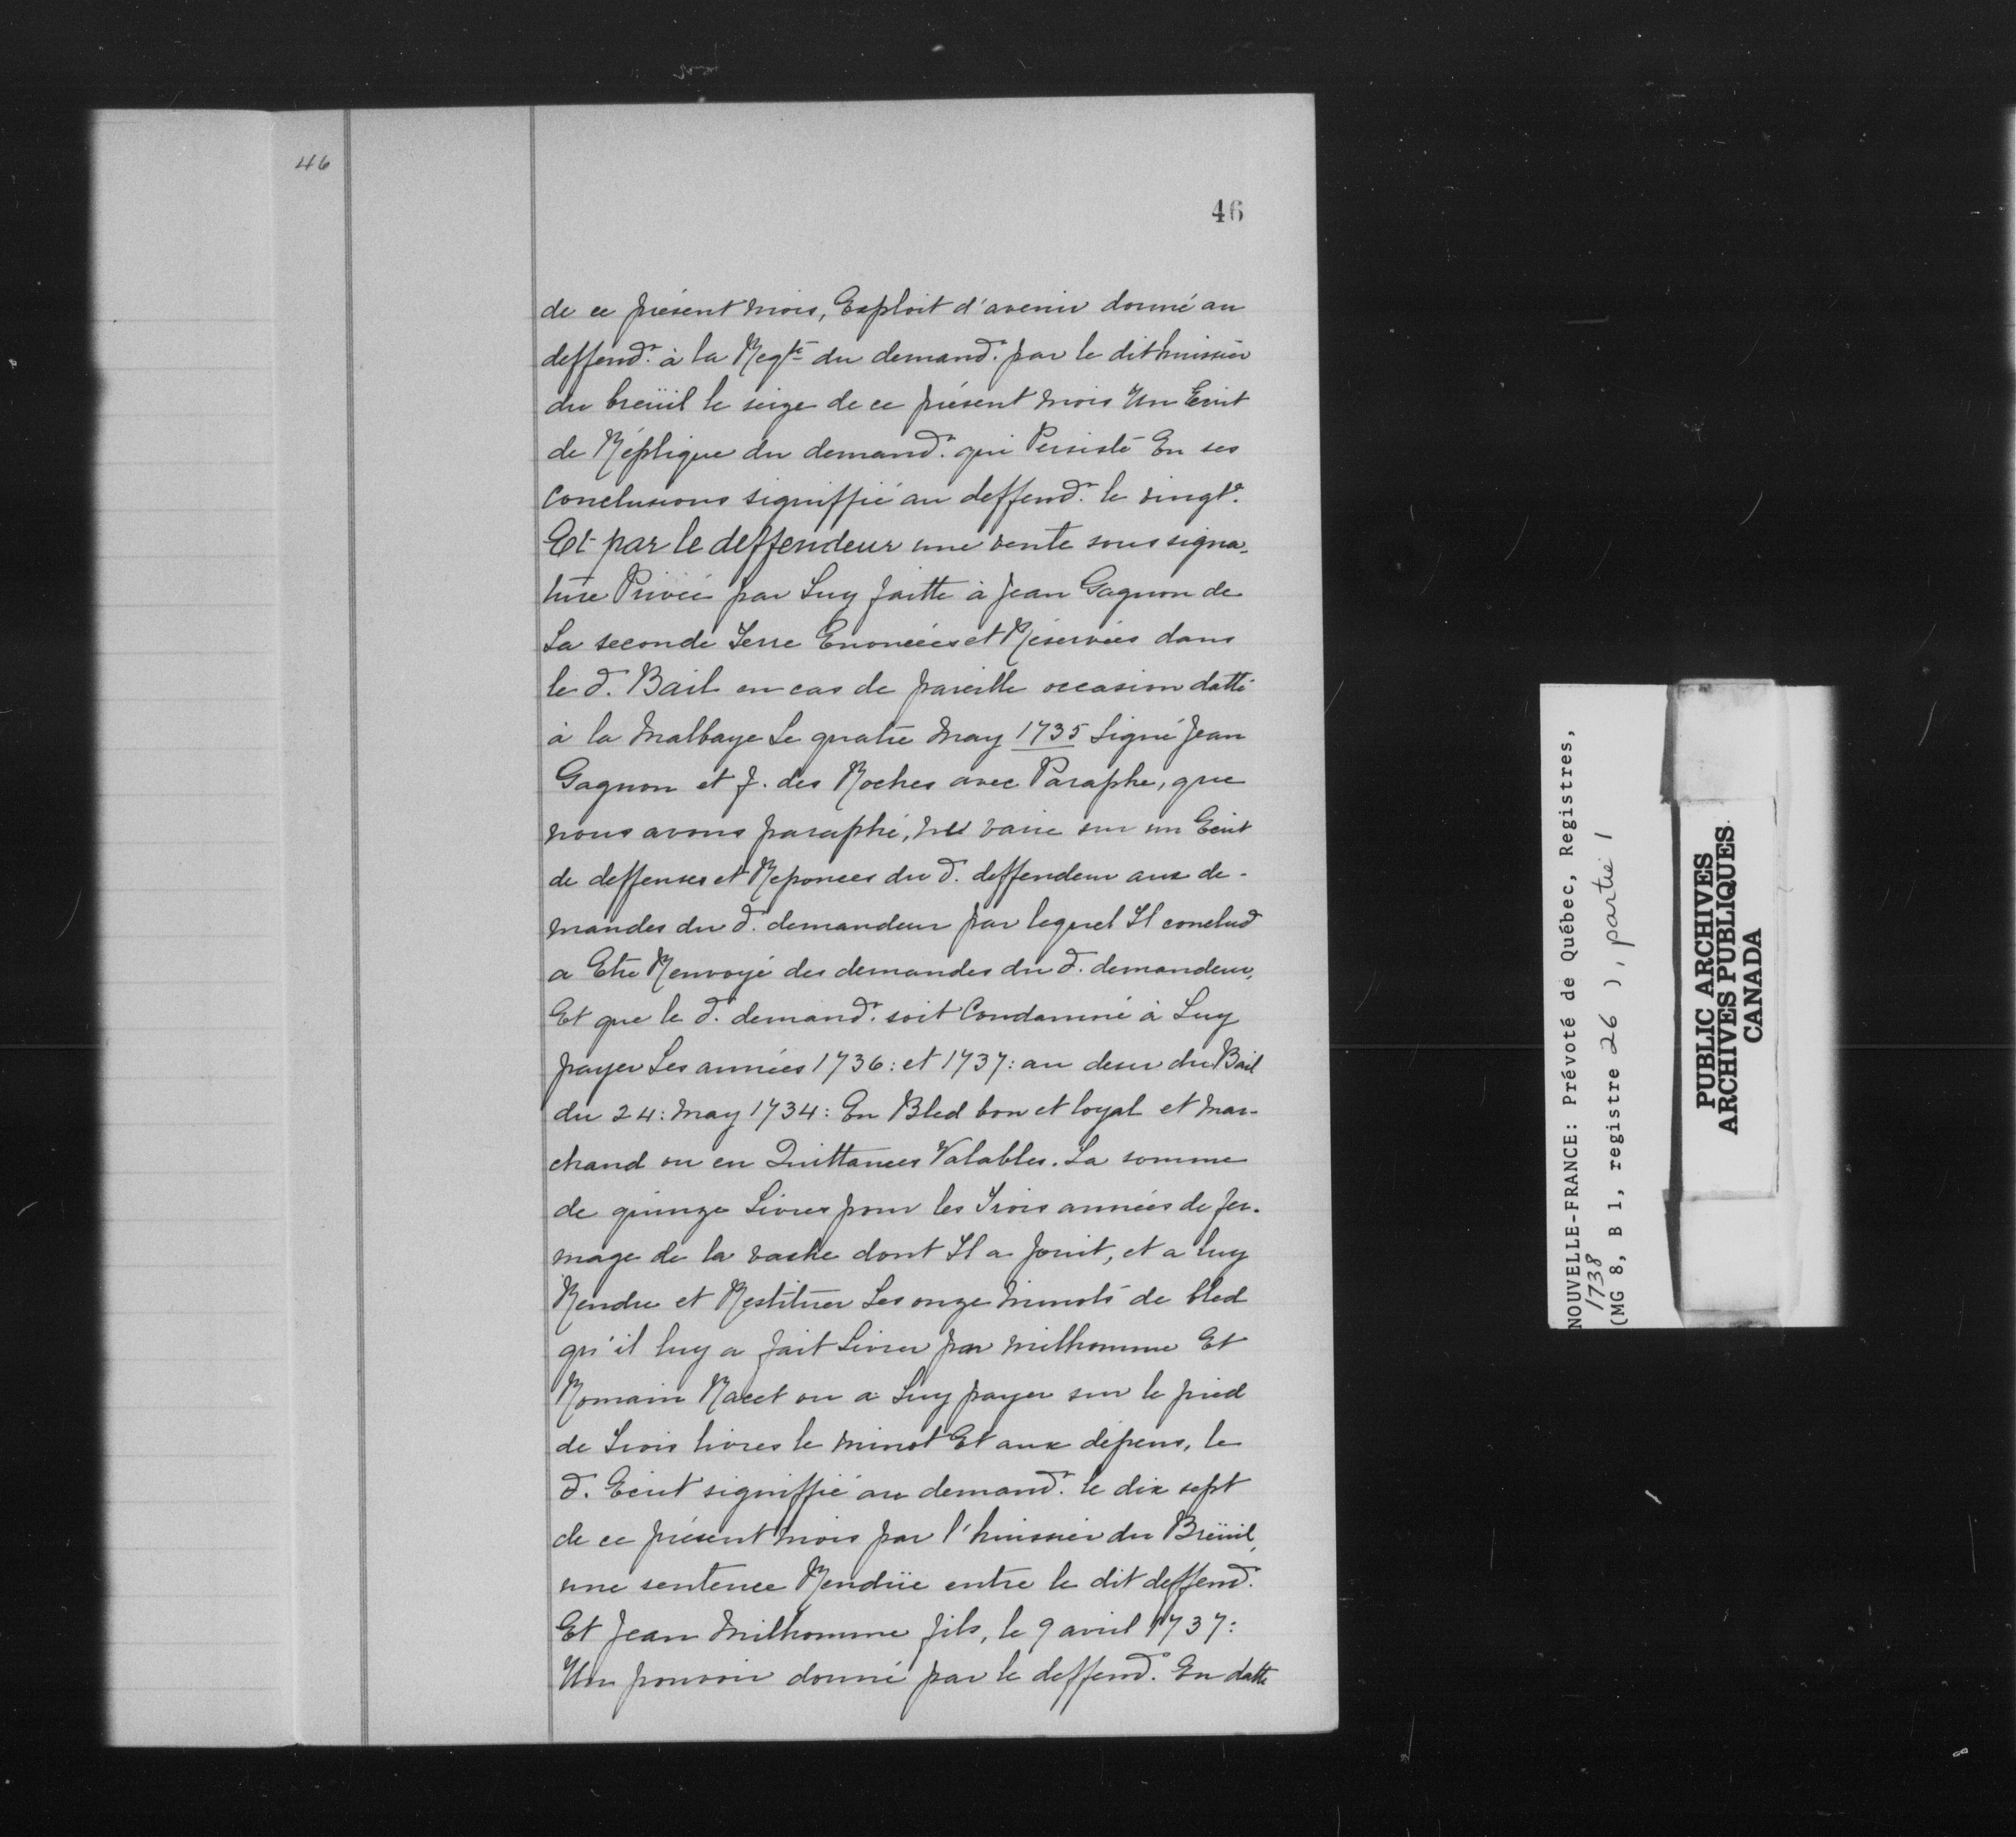 46
46
de ce présent mois, Exploit d'avenir donné au
deffendr. à la Reqte du demandr. par le dit huissier
du breüil le seize de ce présent mois Un Ecrit
de Réplique du demandr. qui Persiste En ses
Conclusions signiffié au deffendr. le vingte.
Et par le deffendeur une vente sous signa-
ture Privée par Luy faitte à Jean Gagnon de
La seconde Terre Enoncées et Réservées dans
le d. Bail en cas de pareille occasion datté
à la Malbaye Le quatre May 1735 Signé Jean
Gagnon et J. des Roches avec Paraphe, que
nous avons paraphé, ne varie sur un Ecrit
de deffenses et Reponces du d. deffendeur aux de-
mandes du d. demandeur par lequel Il conclud
a Etre Renvoyé des demandes du d. demandeur,
Et que le d. demandr. soit Condamné à Luy
payer Les années 1736: et 1737: au desir du Bail
du 24: May 1734: En Bled bon et loyal et mar-
chand ou en Quittances Valables. La somme
de quinze Livres pour les Trois années de fer-
mage de la vache dont Il a Jouit, et a luy
Rendre et Restituer Les onze minots de bled
qu'il luy a fait Livrer par milhomme Et
Romain Racet ou a Luy payer sur le pied
de Trois livres le minot Et aux dépens, le
d. Ecrit signiffié au demandr. le dix sept
de ce présent mois par l'huissier du Breüil,
une sentence Rendüe entre le dit deffendr.
Et Jean Milhomme fils, le 9 avril 1737:
Un pouvoir donné par le deffendr. En datte
NOUVELLE-FRANCE: Prévoté de Québec, Registres,
1738
(MG 8, B 1, registre 26 ), partie 1
PUBLIC ARCHIVES
ARCHIVES PUBLIQUES
CANADA